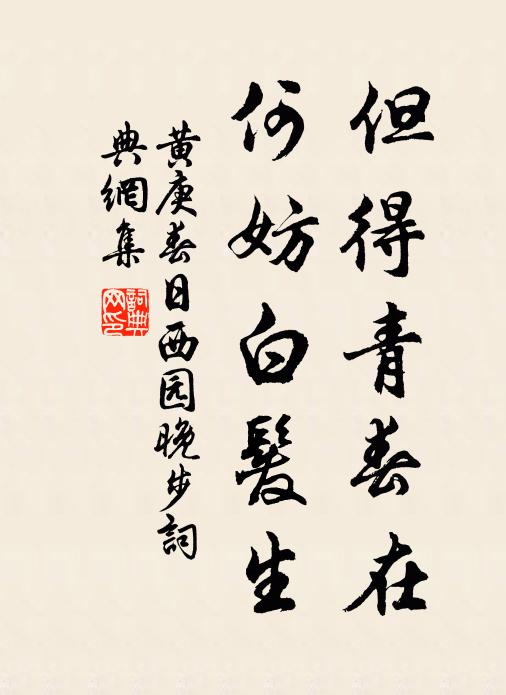 但得青春在
何妨白髮生
黄庚春日西园晚步詞
典網集
詞典
网印